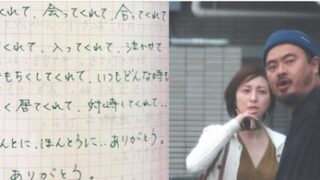 くれて、会ってくれて、合ってくれて
くれて、入ってくれて、泣かせて
もちくしてくれて、いつもどんな時も
く居てくれて、対峙してくれて..
んとに、ほんとうに..ありがとう。
ありがとう。